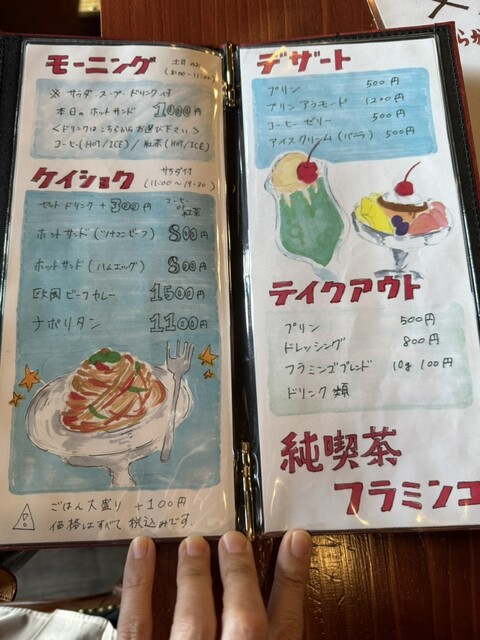 モーニング
土日 のみ
(8:00~11:00)
※ サラダ スープ ドリンク付
本日の ホットサンド 1000円
<ドリンクはこちらからお選び下さい>
コーヒー(HOT/ICE) / 紅茶(HOT/ICE)
ケイショク
サラダ付
(11:00~19:30)
セットドリンク +300円 コーヒー or 紅茶
ホットサンド(ツナコンビーフ) 800円
ホットサンド(ハムエッグ) 800円
欧風ビーフカレー 1500円
ナポリタン 1100円
ごはん大盛り +100円
価格はすべて税込みです。
デザート
プリン 500円
プリンアラモード 1200円
コーヒーゼリー 500円
アイスクリーム(バニラ) 500円
テイクアウト
プリン 500円
ドレッシング 800円
フラミンゴブレンド 10g 100円
ドリンク類
純喫茶
フラミンゴ